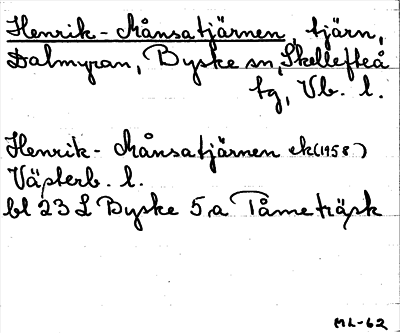 Henrik-Månsatjärnen, tjärn,
Dalmyran, Byske sn, Skellefteå
tg, Vb. l.
Henrik-Månsatjärnen ek(1958)
Västerb. l.
bl 23 L Byske 5,a Tåmeträsk
ML-62